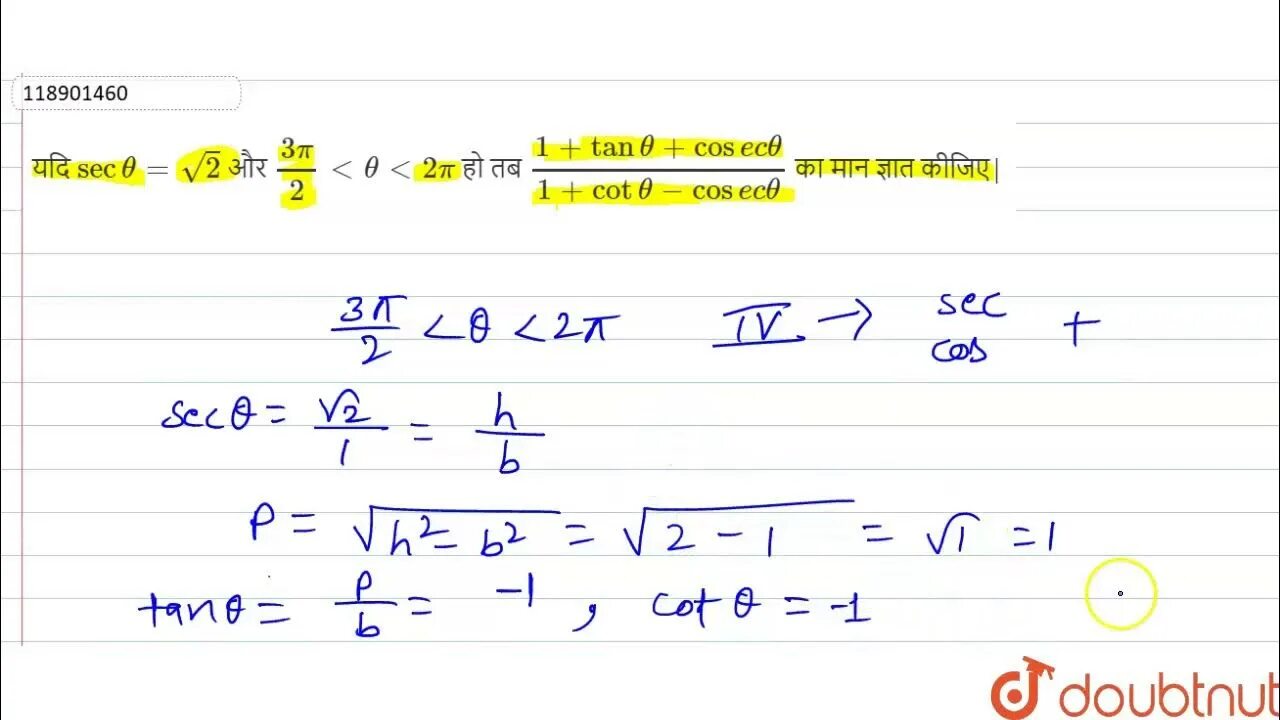 118901460
यदि sec θ = √2 और 3π/2 < θ < 2π हो तब (1 + tan θ + cosecθ)/(1 + cot θ − cosecθ) का मान ज्ञात कीजिए|
3π/2 < θ < 2π IV → sec cos +
sec θ = √2/1 = h/b
P = √(h² − b²) = √(2 − 1) = √1 = 1
tan θ = P/b = −1 , cot θ = −1
doubtnut